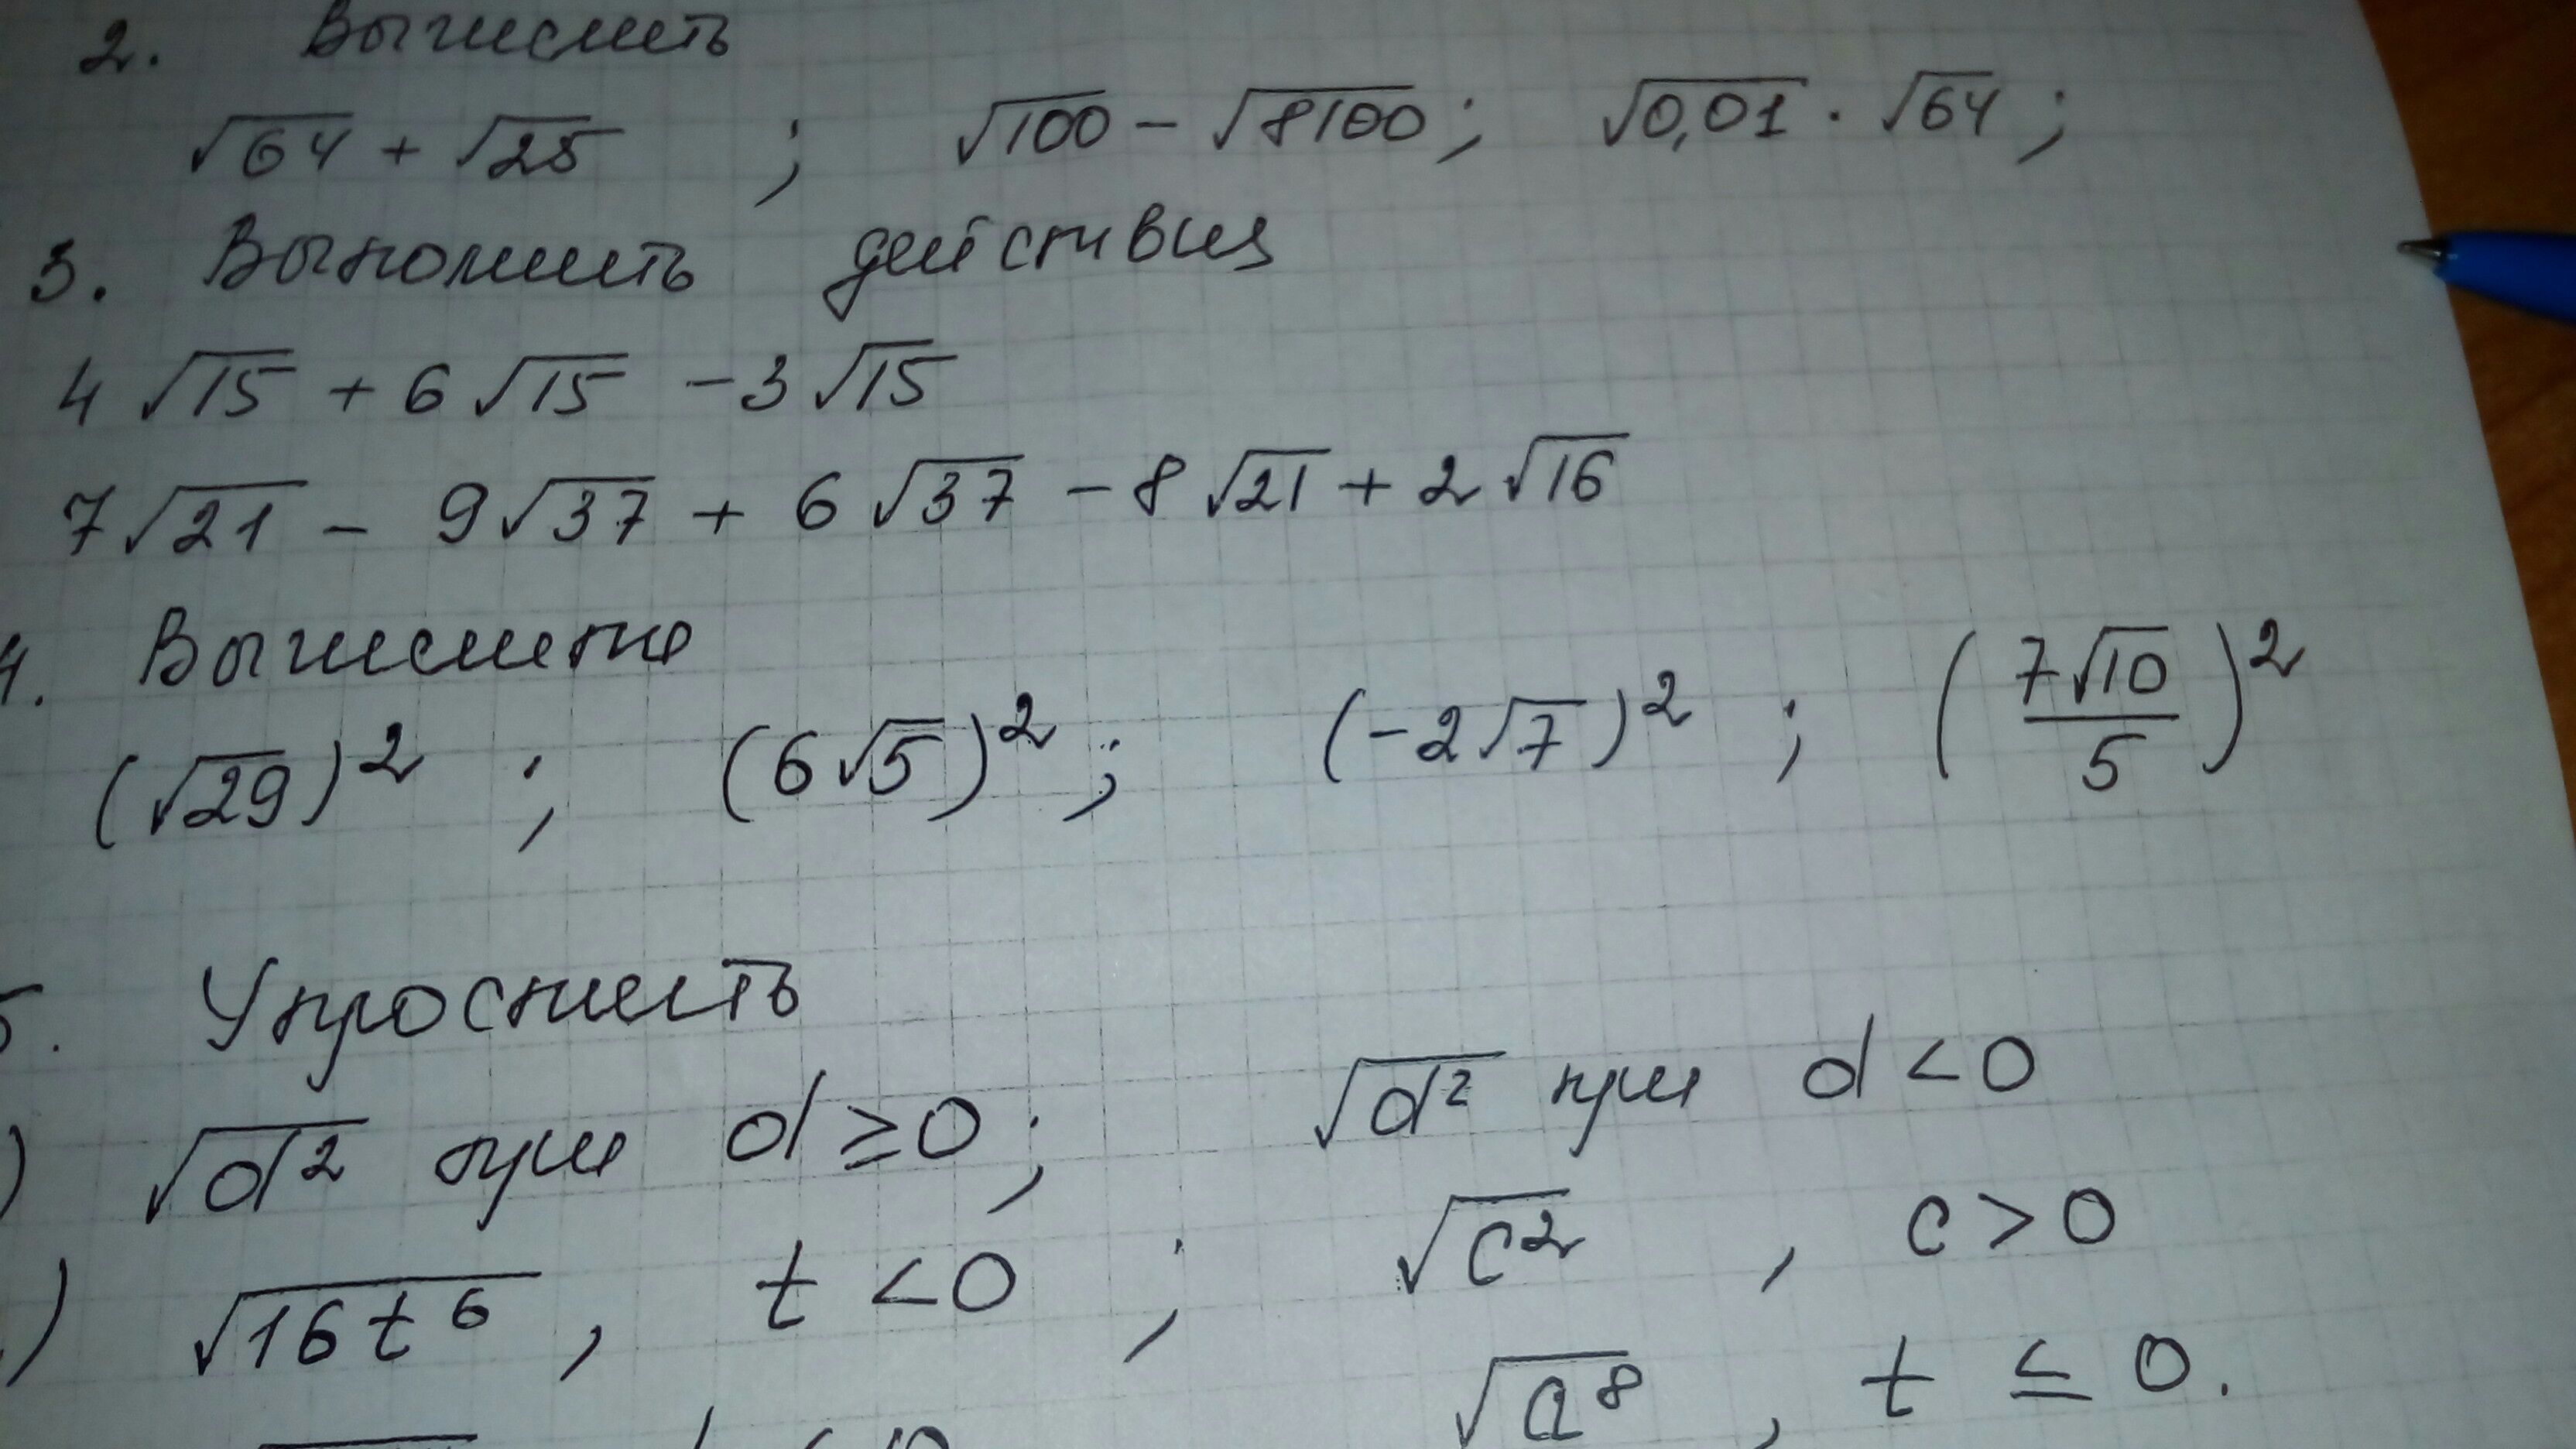 2. Вычислить
√64 + √25 ; √100 − √8100; √0,01 · √64 ;
3. Выполнить действия
4√15 + 6√15 − 3√15
7√21 − 9√37 + 6√37 − 8√21 + 2√16
4. Вычислите
(√29)² ; (6√5)² ; (−2√7)² ; (7√10/5)²
5. Упростить
) √d² при d ≥ 0; √d² при d < 0
) √16t⁶ , t < 0 ; √c² , c > 0
√a⁸ , t ≤ 0.